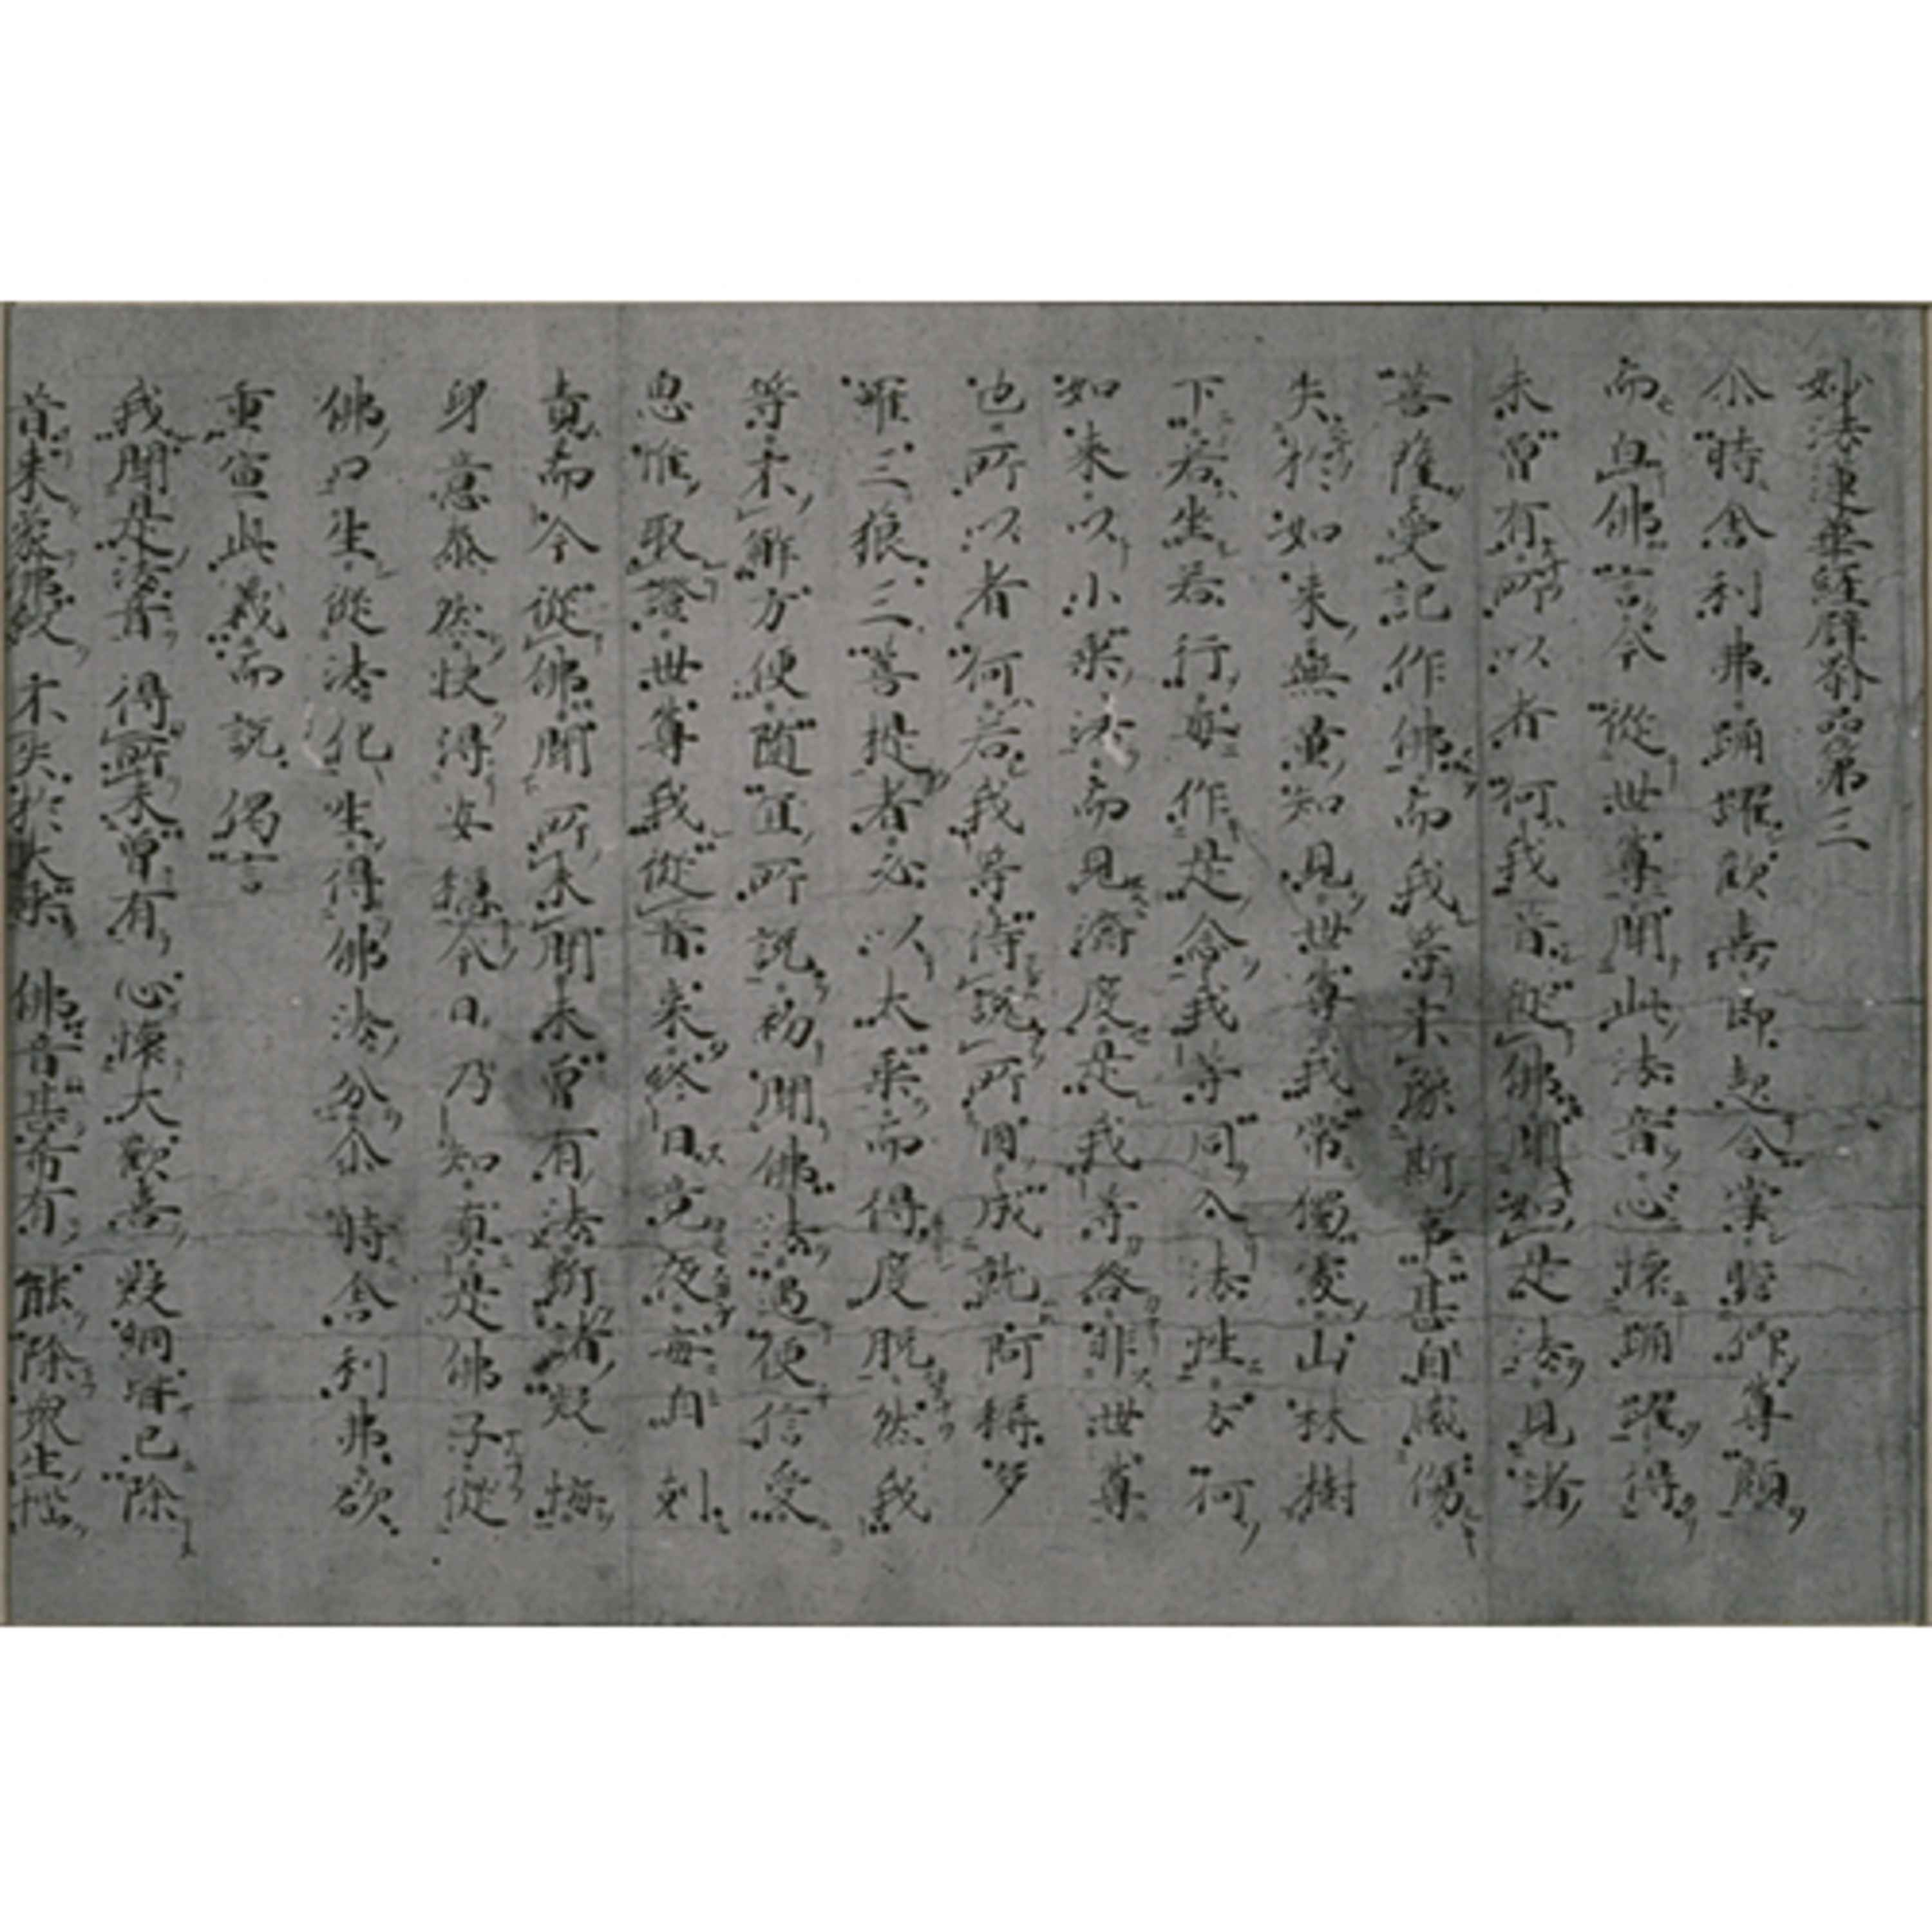 妙法蓮華經譬喻品第三
尒時舍利弗踊躍歡喜即起合掌瞻仰尊顏
而白佛言今從世尊聞此法音心懷踊躍得
未曾有所以者何我昔從佛聞如是法見諸
菩薩受記作佛而我等不豫斯事甚自感傷
失於如來無量知見世尊我常獨處山林樹
下若坐若行每作是念我等同入法性云何
如來以小乘法而見濟度是我等咎非世尊
也所以者何若我等待說所因成就阿耨多
羅三藐三菩提者必以大乘而得度脫然我
等不解方便隨宜所說初聞佛法遇便信受
思惟取證世尊我從昔來終日竟夜每自剋
責而今從佛聞所未聞未曾有法斷諸疑悔
身意泰然快得安穩今日乃知真是佛子從
佛口生從法化生得佛法分尒時舍利弗欲
重宣此義而說偈言
我聞是法音 得所未曾有 心懷大歡喜 疑網皆已除
昔來蒙佛教 不失於大乘 佛音甚希有 能除眾生惱